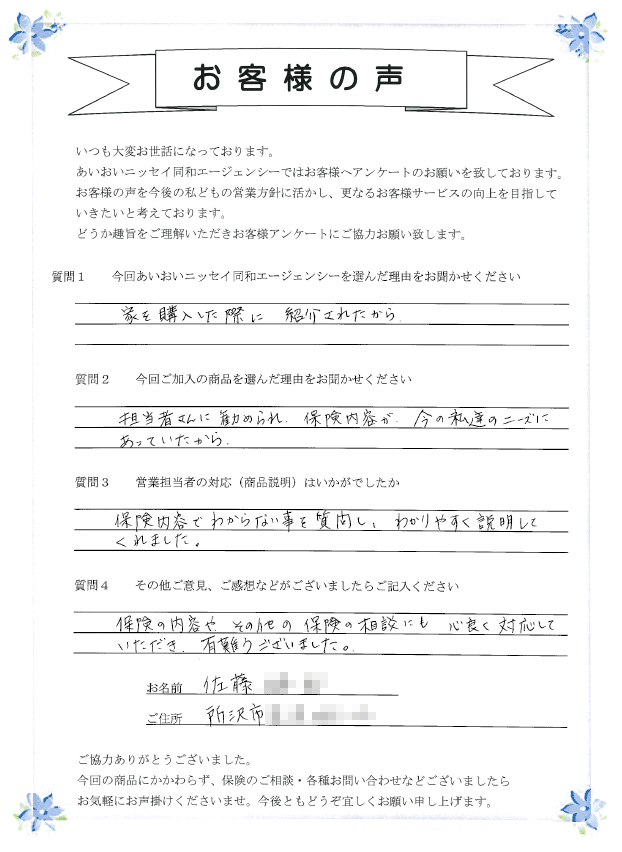 お客様の声
いつも大変お世話になっております。
あいおいニッセイ同和エージェンシーではお客様へアンケートのお願いを致しております。
お客様の声を今後の私どもの営業方針に活かし、更なるお客様サービスの向上を目指して
いきたいと考えております。
どうか趣旨をご理解いただきお客様アンケートにご協力お願い致します。
質問１ 今回あいおいニッセイ同和エージェンシーを選んだ理由をお聞かせください
家を購入した際に 紹介されたから.
質問２ 今回ご加入の商品を選んだ理由をお聞かせください
担当者さんに勧められ. 保険内容が. 今の私達のニーズに
あっていたから.
質問３ 営業担当者の対応（商品説明）はいかがでしたか
保険内容でわからない事を質問し、わかりやすく説明して
くれました。
質問４ その他ご意見、ご感想などがございましたらご記入ください
保険の内容や その他の保険の相談にも 心良く対応して
いただき. 有難うございました。
お名前 佐藤
ご住所 所沢市
ご協力ありがとうございました。
今回の商品にかかわらず、保険のご相談・各種お問い合わせなどございましたら
お気軽にお声掛けくださいませ。今後ともどうぞ宜しくお願い申し上げます。